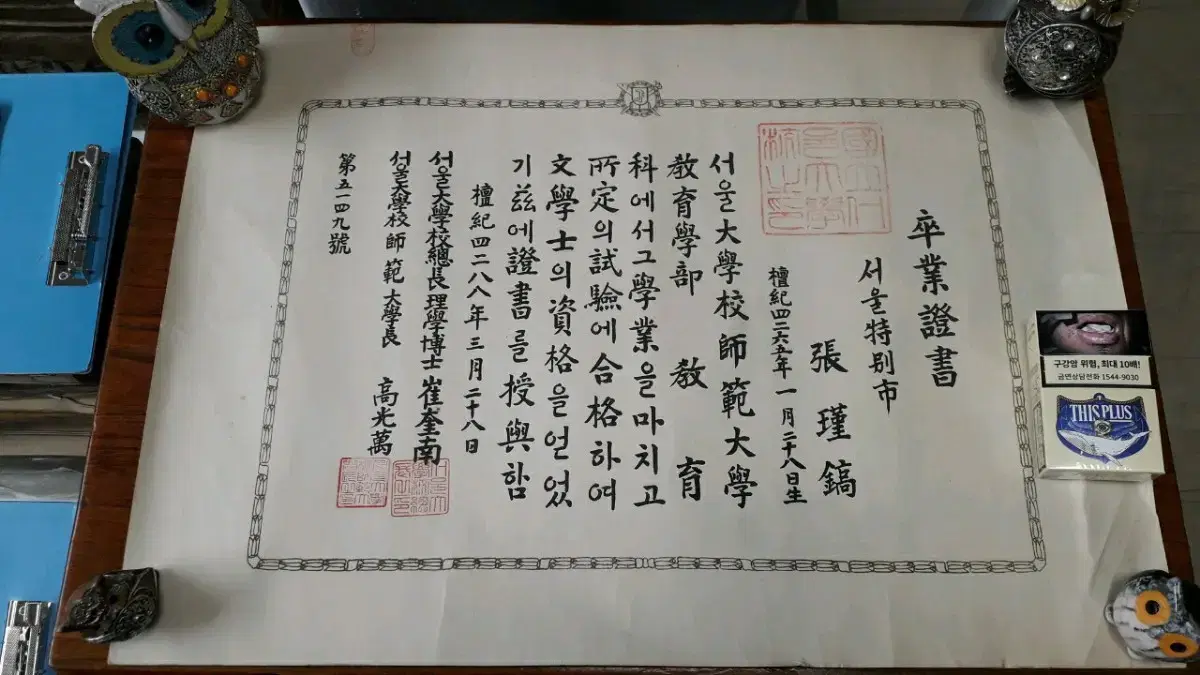 卒業證書
서울特別市
張瑾鎬
檀紀四二六五年一月二十八日生
서울大學校師範大學
敎育學部 敎育
科에서그學業을마치고
所定의試驗에合格하여
文學士의資格을얻었
기玆에證書를授與함
檀紀四二八八年三月二十八日
서울大學校總長理學博士崔奎南
서울大學校師範大學長 高光萬
第五一四九號
구강암 위험, 최대 10배!
금연상담전화 1544-9030
THIS PLUS